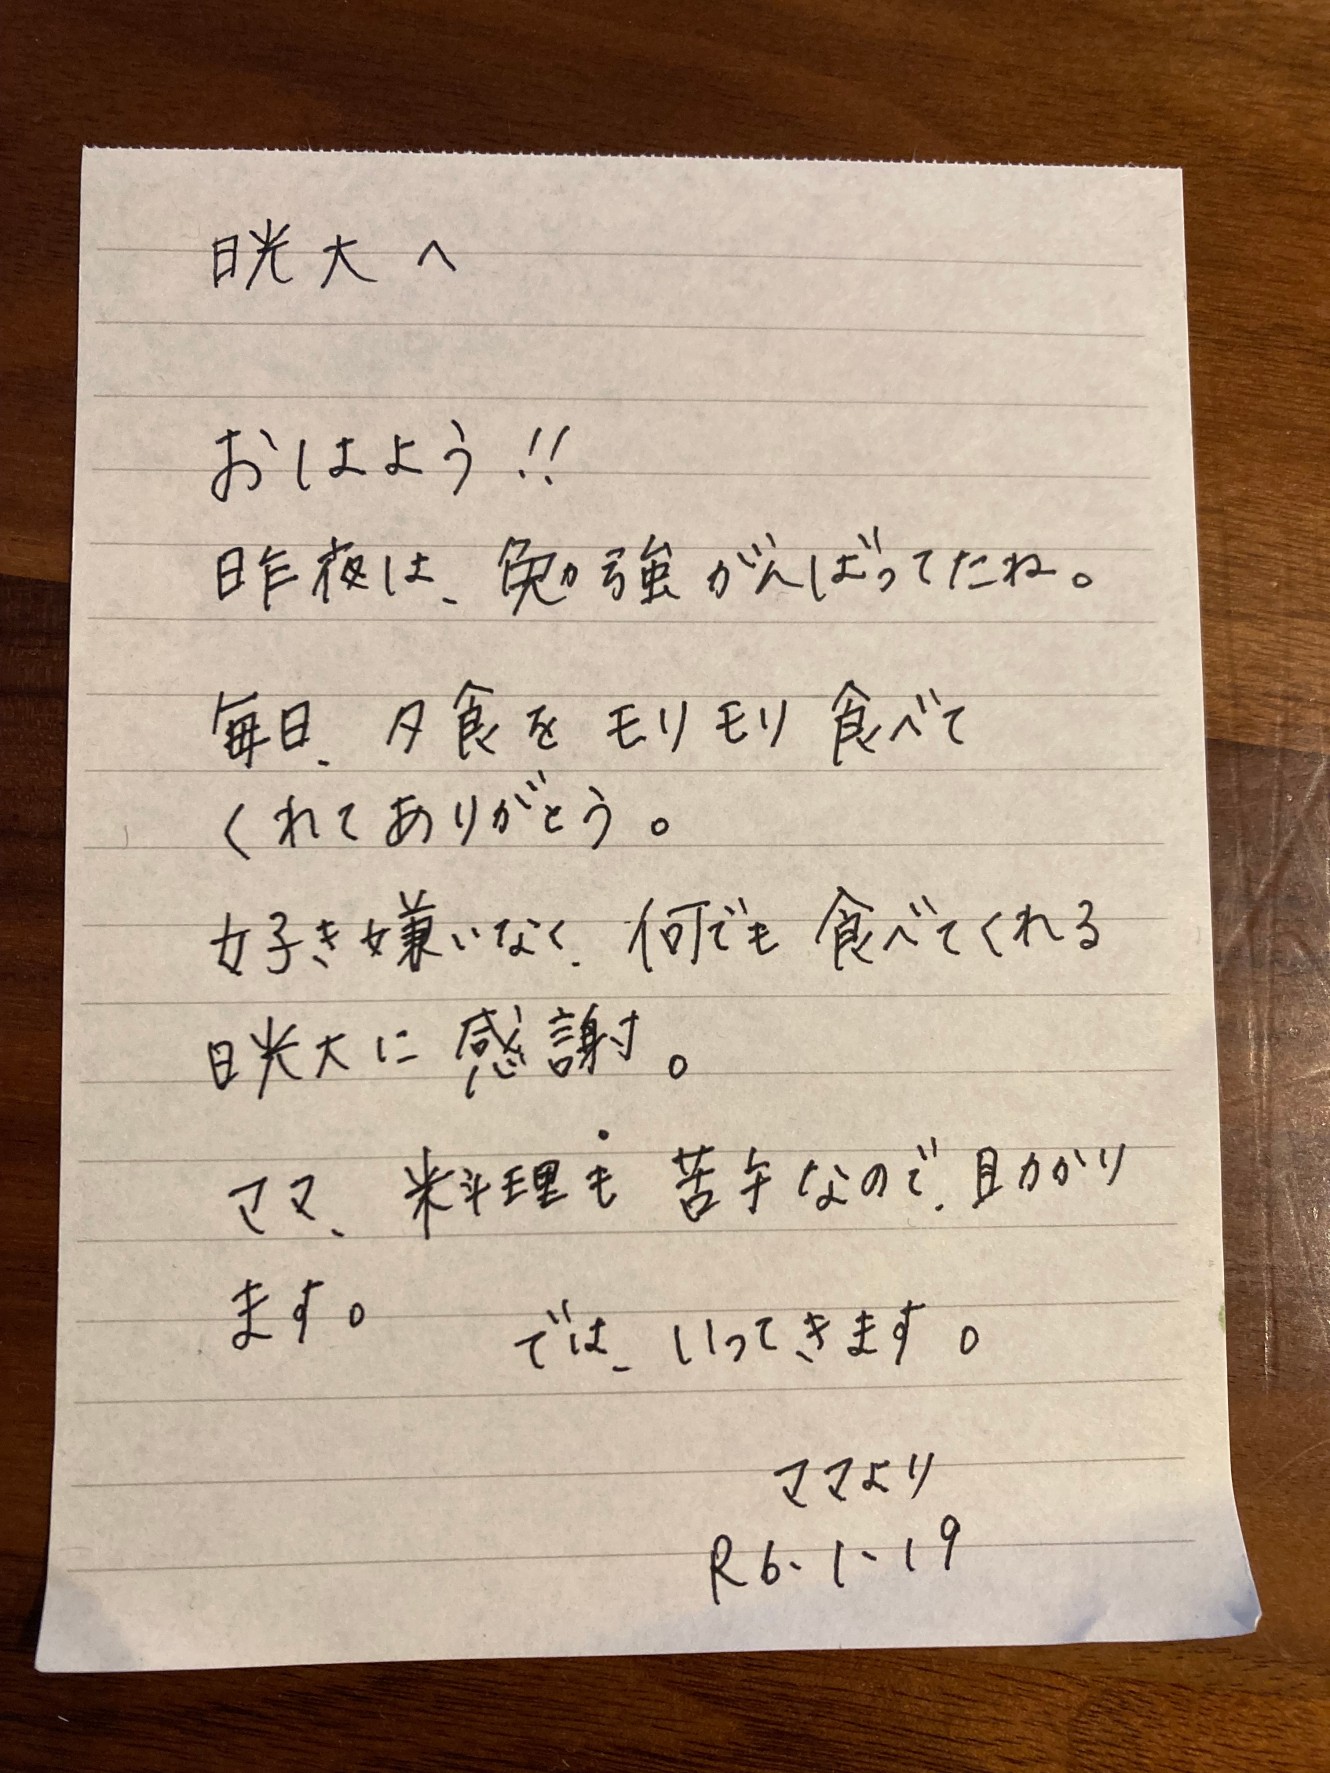 晄大へ
おはよう!!
昨夜は、勉強がんばってたね。
毎日、夕食をモリモリ食べて
くれてありがとう。
好き嫌いなく、何でも食べてくれる
晄大に感謝。
ママ、料理も苦手なので、助かり
ます。
では、いってきます。
ママより
R6.1.19